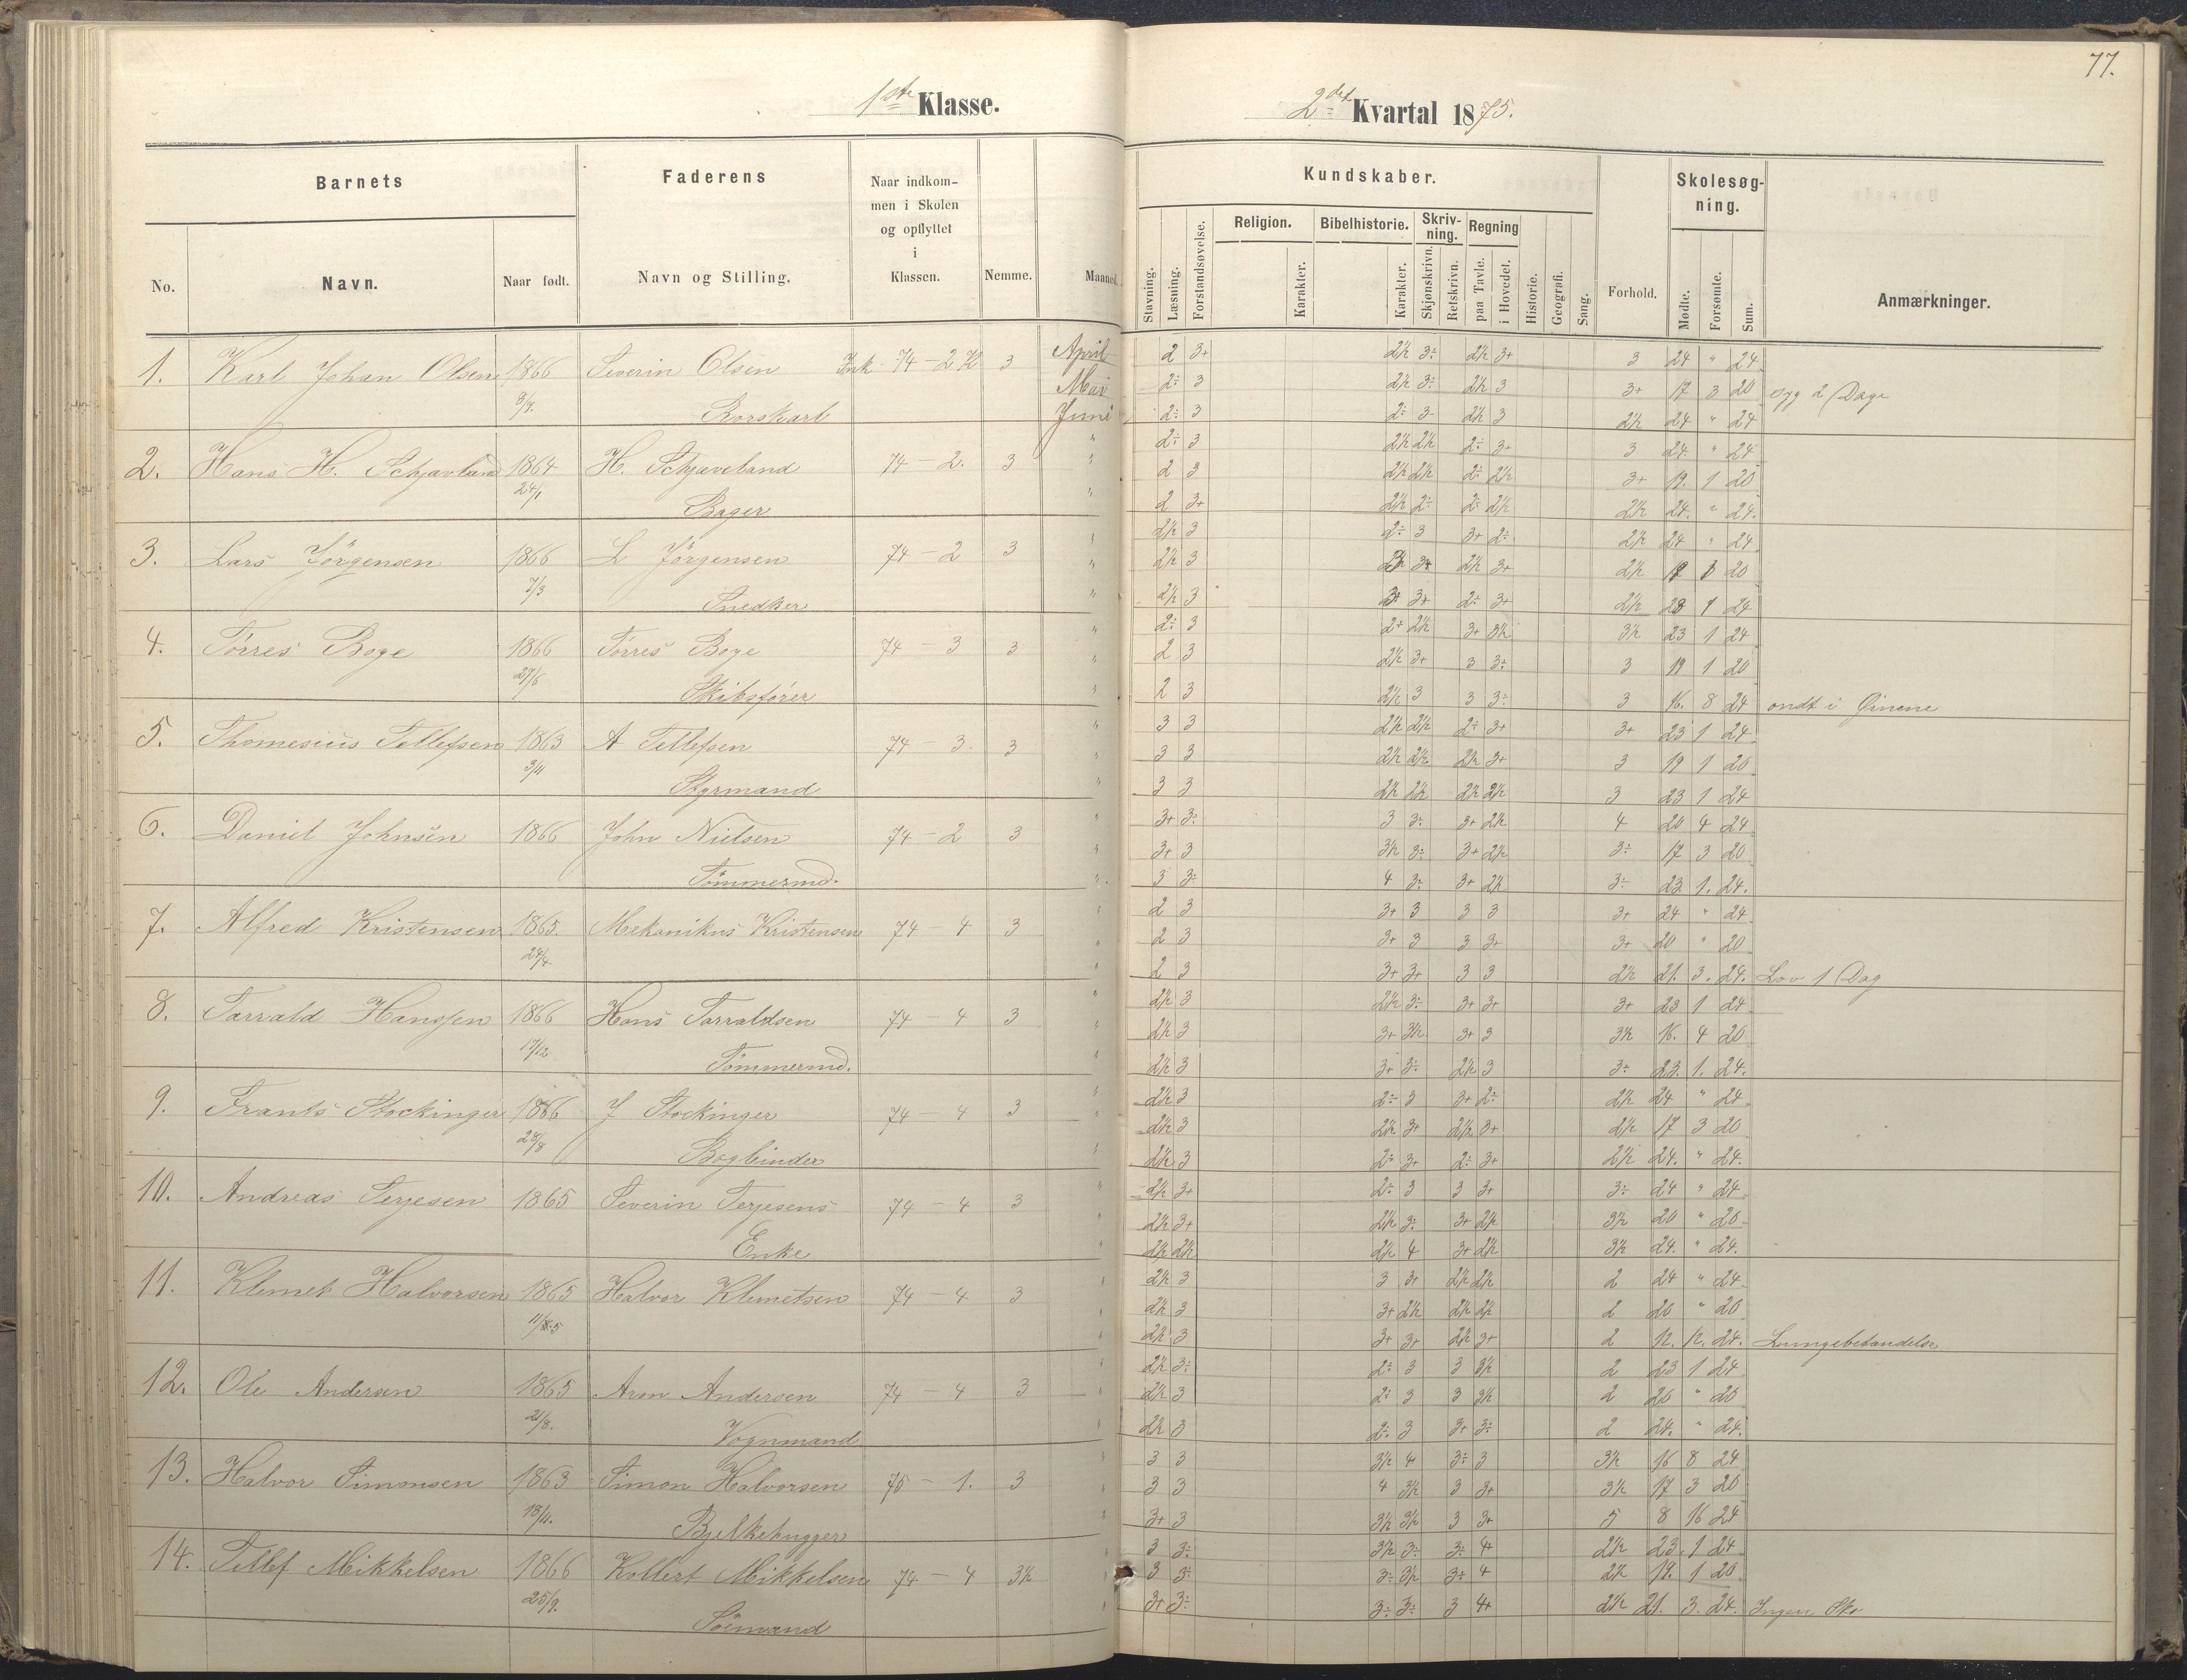 77.
1ste Klasse.
2det Kvartal 1875.
Barnets
Faderens
Naar indkom-
men i Skolen
og opflyttet
i
Klassen.
No.
Navn.
Naar født.
Navn og Stilling.
Nemme.
Maaned.
Kundskaber.
Skolesøg-
ning.
Stavning.
Læsning.
Forstandsøvelse.
Religion.
Karakter.
Bibelhistorie.
Karakter.
Skriv-
ning.
Skjønskrivn.
Retskrivn.
Regning
paa Tavle.
i Hovedet.
Historie.
Geografi.
Sang.
Forhold.
Mødte.
Forsømte.
Sum.
Anmærkninger.
1. Karl Johan Olsen 1866 Severin Olsen 74 - 2 3 April 2 3+ 2½ 3÷ 2½ 3+ 3 24 " 24
Mai 2÷ 3 2½ 3÷ 2½ 3 3+ 17 3 20 syg 2 Dage
Juni 2÷ 3 2÷ 3- 2½ 3 2½ 24 " 24
2. Hans H. Schjavland 1864 24/1 H. Schjaveland 74 - 2. 3 " 2÷ 3 2½ 2½ 2÷ 3+ 3 24 " 24
" 2 3 2½ 2½ 2÷ 2½ 3+ 19. 1 20
Bager " 2 3+ 2½ 2÷ 2÷ 2½ 2½ 24. " 24.
3. Lars Jörgensen 1866 7/3 L Jörgensen 74 - 2 3 " 2½ 3 2÷ 3 3+ 2÷ 2½ 24 " 24
" 2½ 3 2½ 3+ 2½ 20
Snedker 2½ 3 3+ 3+ 2÷ 3+ 2½ 23 1 24
4. Törres Boge 1866 27/6 Törres Boge 74 - 3 3 " 2÷ 3 2+ 2½ 3+ 3½ 3½ 23 1 24
" 2 3 2½ 3+ 3 3÷ 3 19 1 20
Skibsfører " 2 3 2½ 3 3 3÷ 3 16. 8 24 ondt i Øinene
5. Thomesius Tellefsen 1863 3/11 A Tellefsen 74 - 3. 3 " 3 3 2½ 2½ 2÷ 3+ 3+ 23 1 24
" 3 3 2½ 2½ 2½ 3+ 3 19 1 20
Styrmand " 3 3 2½ 2½ 2½ 2½ 3 23 1 24
6. Daniel Johnsen 1866 John Nielsen 74 - 2 3 " 3+ 3÷ 3 3÷ 3+ 2½ 4 20 4 24
" 3+ 3 3½ 3÷ 3+ 2½ 3÷ 17 3 20
Tömmermd. " 3 3÷ 4 3÷ 3+ 2½ 3÷ 23. 1. 24.
7. Alfred Kristensen 1865. 24/4 Mekanikus Kristensen 74 - 4 3 " 2 3 3+ 3 3 3 3+ 24 " 24
" 2 3 3+ 3 3 3+ 3+ 20 " 20
" 2 3 3+ 3+ 3 3 2½ 21. 3. 24. Lov 1 Dag
8. Tarrald Hanssen 1866 17/12 Hans Tarraldsen 74 - 4 3 " 2½ 3 2½ 3÷ 3+ 3+ 3+ 23 1 24
" 2½ 3 3+ 3½ 3+ 3 3½ 16. 4 20
Tömmermd. " 2½ 3 3+ 3÷ 2½ 3 3÷ 23. 1. 24.
9. Frants Stockinger 1866 28/8 J Stockinger 74 4 3 " 2½ 3 2÷ 3 3+ 2÷ 2½ 24 " 24
" 2½ 3 2½ 3+ 2½ 3+ 2½ 17 3 20
Bogbinder " 2½ 3 2÷ 3+ 2÷ 3+ 2½ 24. " 24.
10. Andreas Terjesen 1865 Severin Terjesens 74 - 4 3 " 2½ 3+ 2÷ 3 3 3+ 3÷ 24 " 24
" 2½ 3+ 2½ 3÷ 3+ 2½ 3½ 20 " 20
Enke " 2½ 2½ 2½ 4 3+ 2½ 3½ 24. " 24.
11. Klemet Halvorsen 1865 Halvor Klemetsen 74 - 4 3 " 2½ 3 3 3+ 2½ 2½ 2 24 " 24
" 2½ 3 3+ 2½ 2½ 2½ 2 20 " 20
" 2½ 3 3+ 3+ 2½ 3+ 2 12. 12. 24. Lungebetændelse
12. Ole Andersen 1865 21/8. Aron Andersen 74 - 4 3 " 2½ 3÷ 2÷ 3 3 3½ 2 23 1 24
" 2½ 3 2÷ 3 3 3½ 2 20 " 20
Vognmand " 2½ 3 2÷ 3 3+ 3÷ 2 24. " 24.
13. Halvor Simonsen 1863 18/11. Simon Halvorsen 75 - 1. 3 " 3 3 3½ 4 3÷ 3 3½ 16 8 24
" 3 3 4 3½ 3 3+ 3½ 17 3 20
Bjelkehugger " 3+ 3 3½ 3½ 3 3+ 5 8 16 24
14. Tellef Mikkelsen 1866 25/9. Kollert Mikkelsen 74 - 4 3½ " 3 3÷ 3½ 3÷ 3÷ 4+ 2½ 23. 1 24
" 3 3÷ 3÷ 3½ 3÷ 4 2½ 19. 1 20
Sömand " 3+ 3÷ 3÷ 3÷ 3 4+ 2½ 21. 3. 24. Ingen Sko